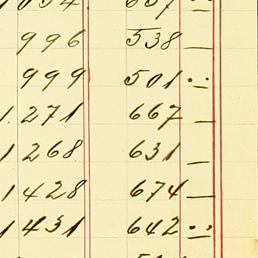 1054 637 ..
996 538 —
999 501 ..
1.271 667 —
1 268 631 —
1 428 674 —
1 431 642 ..